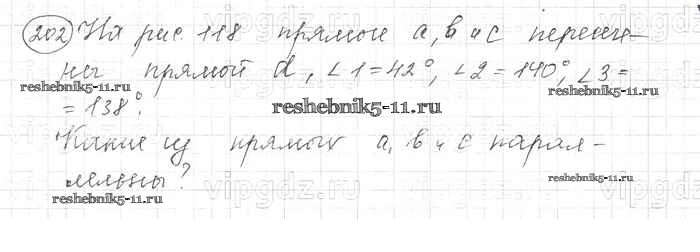 202 На рис. 118 прямые a, b и c пересече-
ны прямой d, ∠1=42°, ∠2=140°, ∠3=
reshebnik5-11.ru reshebnik5-11.ru
= 138°.
reshebnik5-11.ru
Какие из прямых a, b и c парал-
лельны?
reshebnik5-11.ru
vipgdz.ru vipgdz.ru
reshebnik5-11.ru